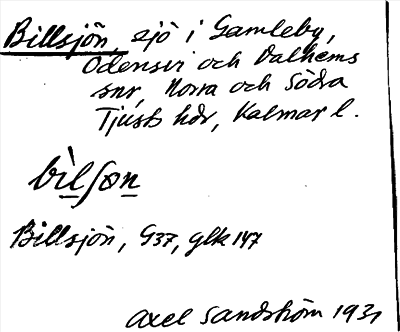 Billsjön, sjö i Gamleby,
Odensvi och Dalhems
snr, Norra och Södra
Tjusts hdr, Kalmar l.
bìlʃön
Billsjön, G37, glk 147
Axel Sandström 1931